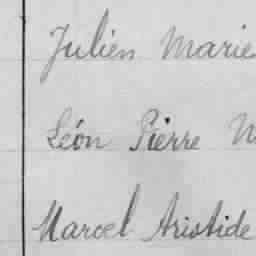 Julien Marie
Léon Pierre
Marcel Aristide